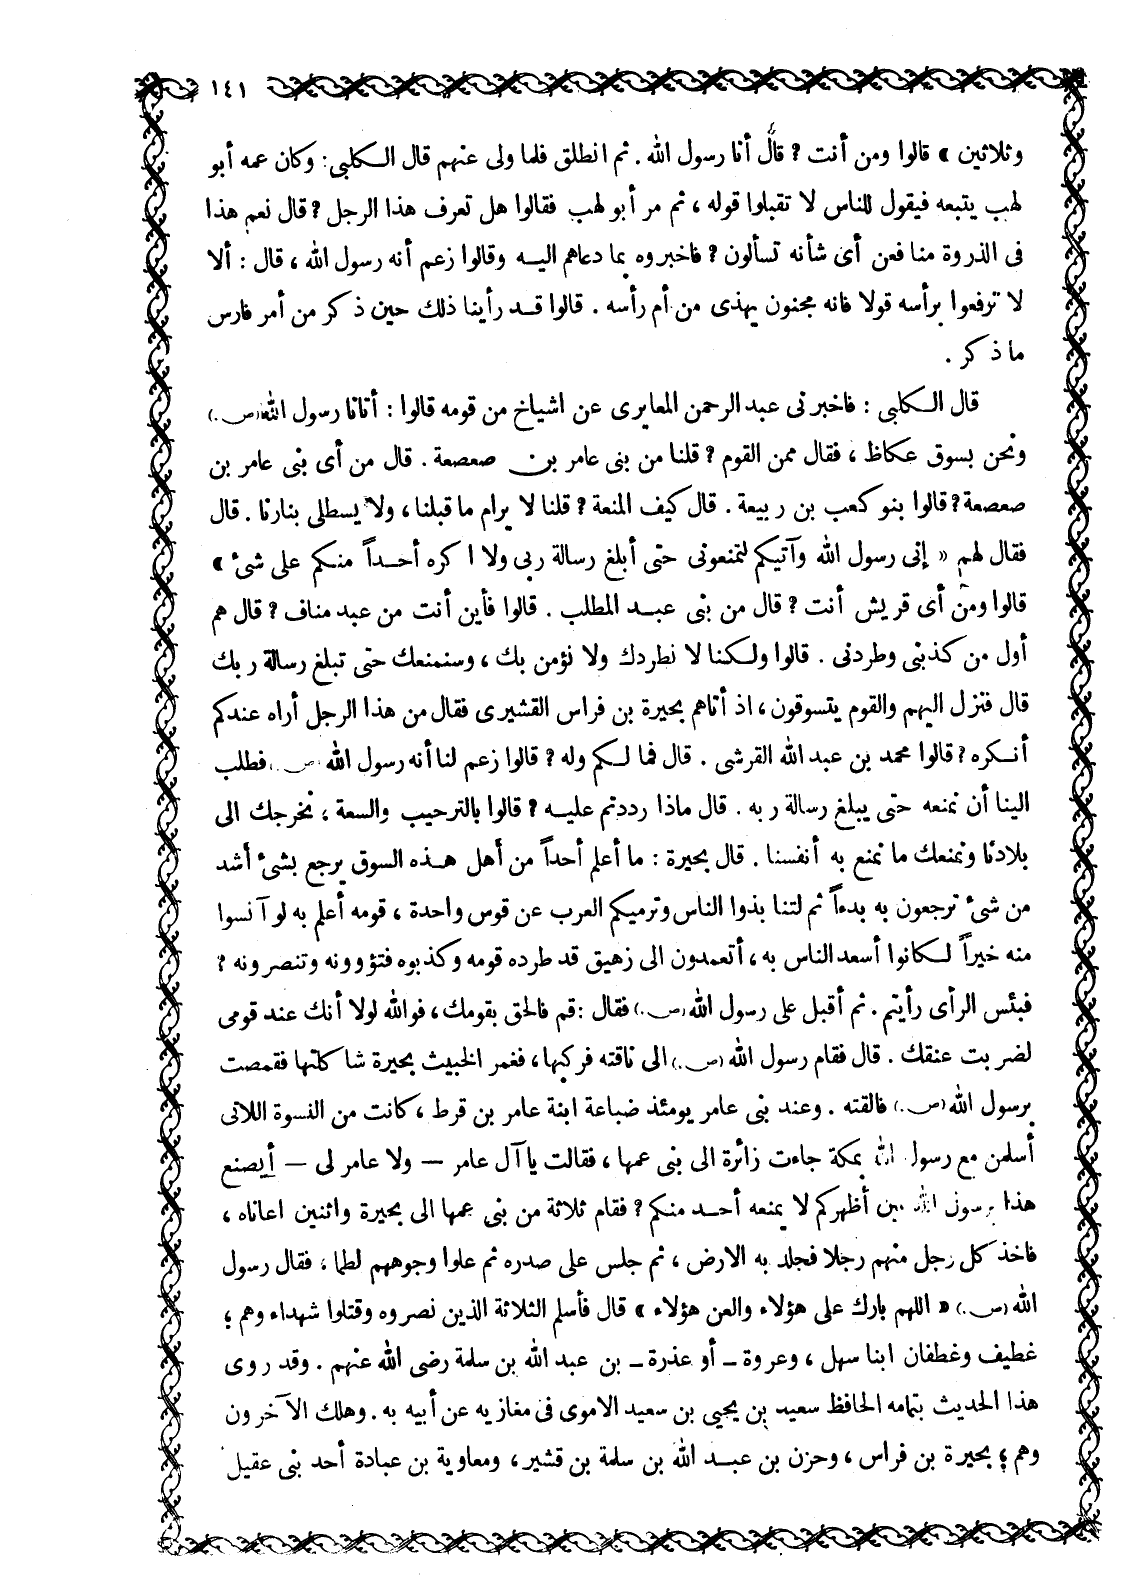 ١٤١
وثلاثين » قالوا ومن أنت ؟ قال أنا رسول الله . ثم انطلق فلما ولى عنهم قال الكلبى : وكان عمه أبو
لهب يتبعه فيقول للناس لا تقبلوا قوله ، ثم مر أبو لهب فقالوا هل تعرف هذا الرجل ؟ قال نعم هذا
فى الذروة منا فعن أى شأنه تسألون ؟ فاخبروه بما دعاهم اليه وقالوا زعم أنه رسول الله ، قال : ألا
لا ترفعوا برأسه قولا فانه مجنون يهذى من أم رأسه . قالوا قد رأينا ذلك حين ذكر من أمر فارس
ما ذكر .
قال الكلبى : فاخبرنى عبد الرحمن المعايرى عن اشياخ من قومه قالوا : أتانا رسول الله (ص.)
ونحن بسوق عكاظ ، فقال ممن القوم ؟ قلنا من بنى عامر بن صعصعة . قال من أى بنى عامر بن
صعصعة ؟ قالوا بنو كعب بن ربيعة . قال كيف المنعة ؟ قلنا لا يرام ما قبلنا ، ولا يسطلى بنارنا . قال
فقال لهم « إنى رسول الله وآتيكم لتمنعونى حتى أبلغ رسالة ربى ولا اكره أحداً منكم على شئ »
قالوا ومن أى قريش أنت ؟ قال من بنى عبد المطلب . قالوا فأين أنت من عبد مناف ؟ قال هم
أول من كذبنى وطردنى . قالوا ولكنا لا نطردك ولا نؤمن بك ، وسنمنعك حتى تبلغ رسالة ربك
قال فنزل اليهم والقوم يتسوقون ، اذ أتاهم بحيرة بن فراس القشيرى فقال من هذا الرجل أراه عندكم
أنكره ؟ قالوا محمد بن عبد الله القرشى . قال فما لكم وله ؟ قالوا زعم لنا أنه رسول الله (ص.) فطلب
الينا أن نمنعه حتى يبلغ رسالة ربه . قال ماذا رددتم عليه ؟ قالوا بالترحيب والسعة ، نخرجك الى
بلادنا ونمنعك ما نمنع به أنفسنا . قال بحيرة : ما أعلم أحداً من أهل هذه السوق يرجع بشئ أشد
من شئ ترجعون به بدءاً ثم لتنا بذوا الناس وترميكم العرب عن قوس واحدة ، قومه أعلم به لو آنسوا
منه خيراً لكانوا أسعد الناس به ، أتعمدون الى زهيق قد طرده قومه وكذبوه فتؤوونه وتنصرونه ؟
فبئس الرأى رأيتم . ثم أقبل على رسول الله (ص.) فقال : قم فالحق بقومك ، فوالله لولا أنك عند قومى
لضربت عنقك . قال فقام رسول الله (ص.) الى ناقته فركبها ، فغمز الخبيث بحيرة شاكلتها فقمصت
برسول الله (ص.) فالقته . وعند بنى عامر يومئذ ضباعة ابنة عامر بن قرط ، كانت من النسوة اللاتى
أسلمن مع رسول الله بمكة جاءت زائرة الى بنى عمها ، فقالت يا آل عامر — ولا عامر لى — أيصنع
هذا برسول الله بين أظهركم لا يمنعه أحد منكم ؟ فقام ثلاثة من بنى عمها الى بحيرة واثنين اعاناه ،
فاخذ كل رجل منهم رجلا فجلد به الارض ، ثم جلس على صدره ثم علوا وجوههم لطما ، فقال رسول
الله (ص.) « اللهم بارك على هؤلاء والعن هؤلاء » قال فأسلم الثلاثة الذين نصروه وقتلوا شهداء وهم ؛
غطيف وغطفان ابنا سهل ، وعروة ـ أو عذرة ـ بن عبد الله بن سلمة رضى الله عنهم . وقد روى
هذا الحديث بتمامه الحافظ سعيد بن يحيى بن سعيد الاموى فى مغازيه عن أبيه به . وهلك الآخرون
وهم ؛ بحيرة بن فراس ، وحزن بن عبد الله بن سلمة بن قشير ، ومعاوية بن عبادة أحد بنى عقيل